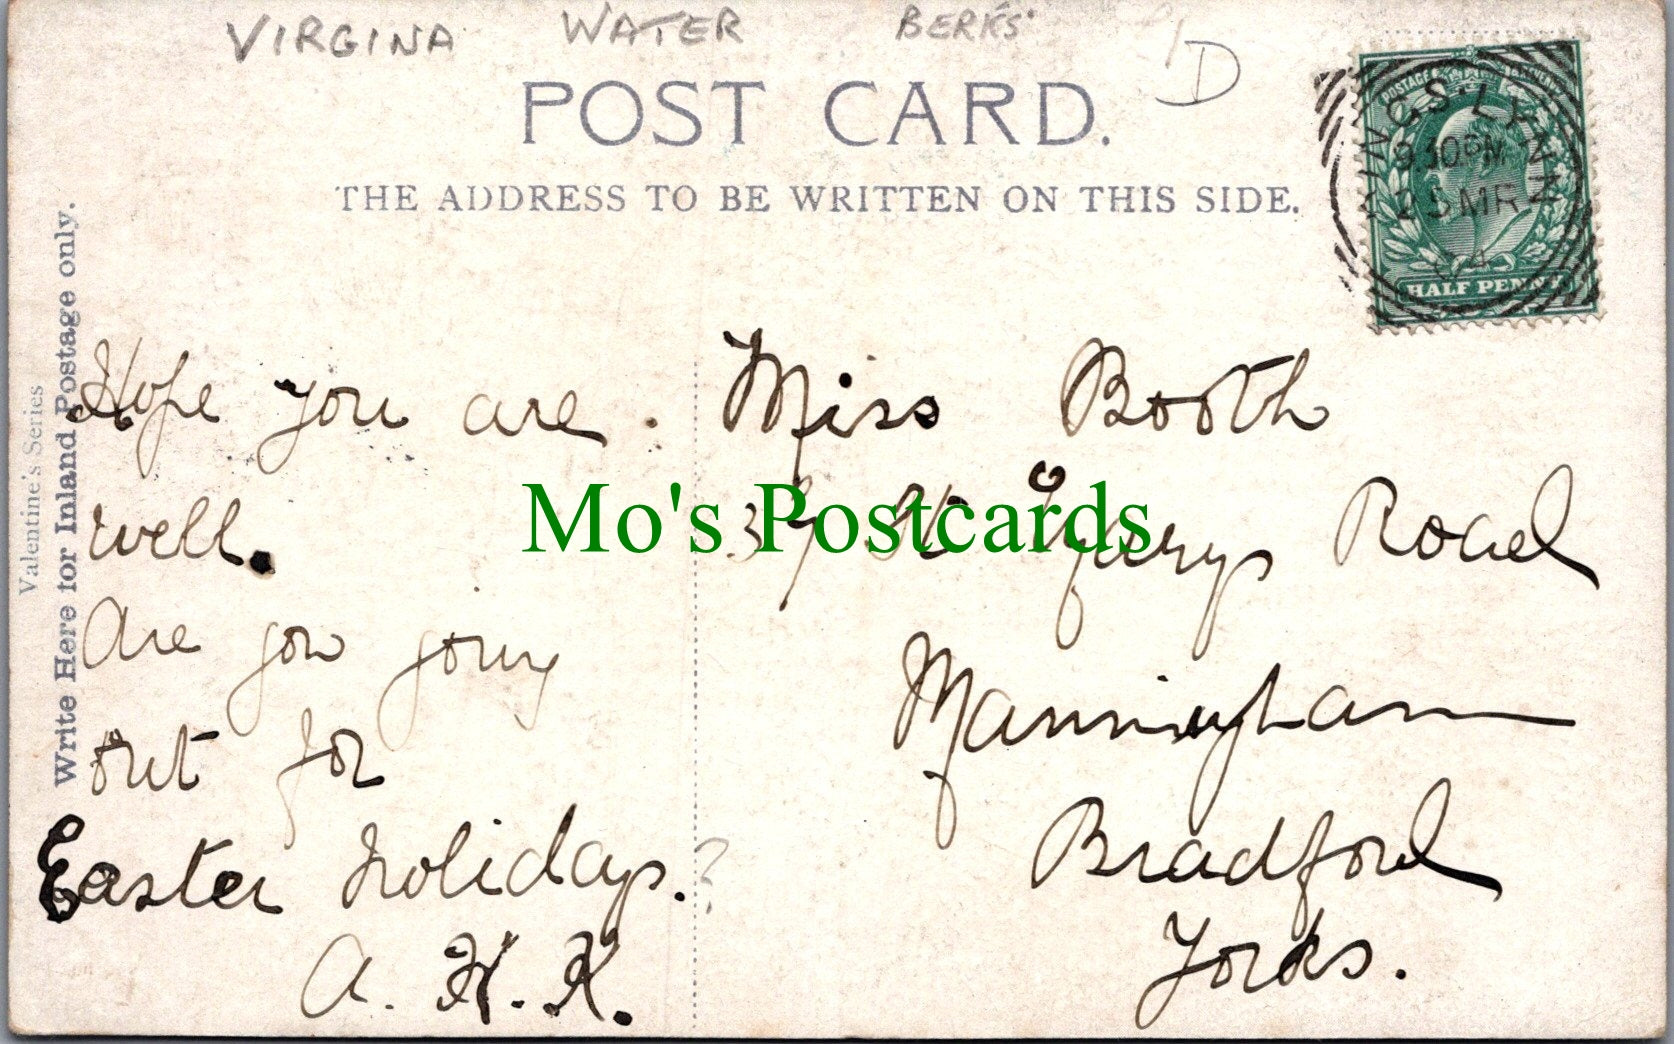 VIRGINA WATER BERKS
D
POST CARD.
THE ADDRESS TO BE WRITTEN ON THIS SIDE.
POSTAGE & REVENUE
HALF PENNY
KING'S·LYNN
9.30PM
25 MR
04
Valentine's Series
Write Here for Inland Postage only.
Hope you are.
well.
Are you going
out for
Easter holidays.?
A. H. K.
Miss Booth
37 St Marys Road
Manningham
Bradford
Yorks.
Mo's Postcards